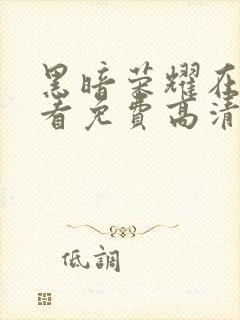 黑暗荣耀在
看免費高清
低調